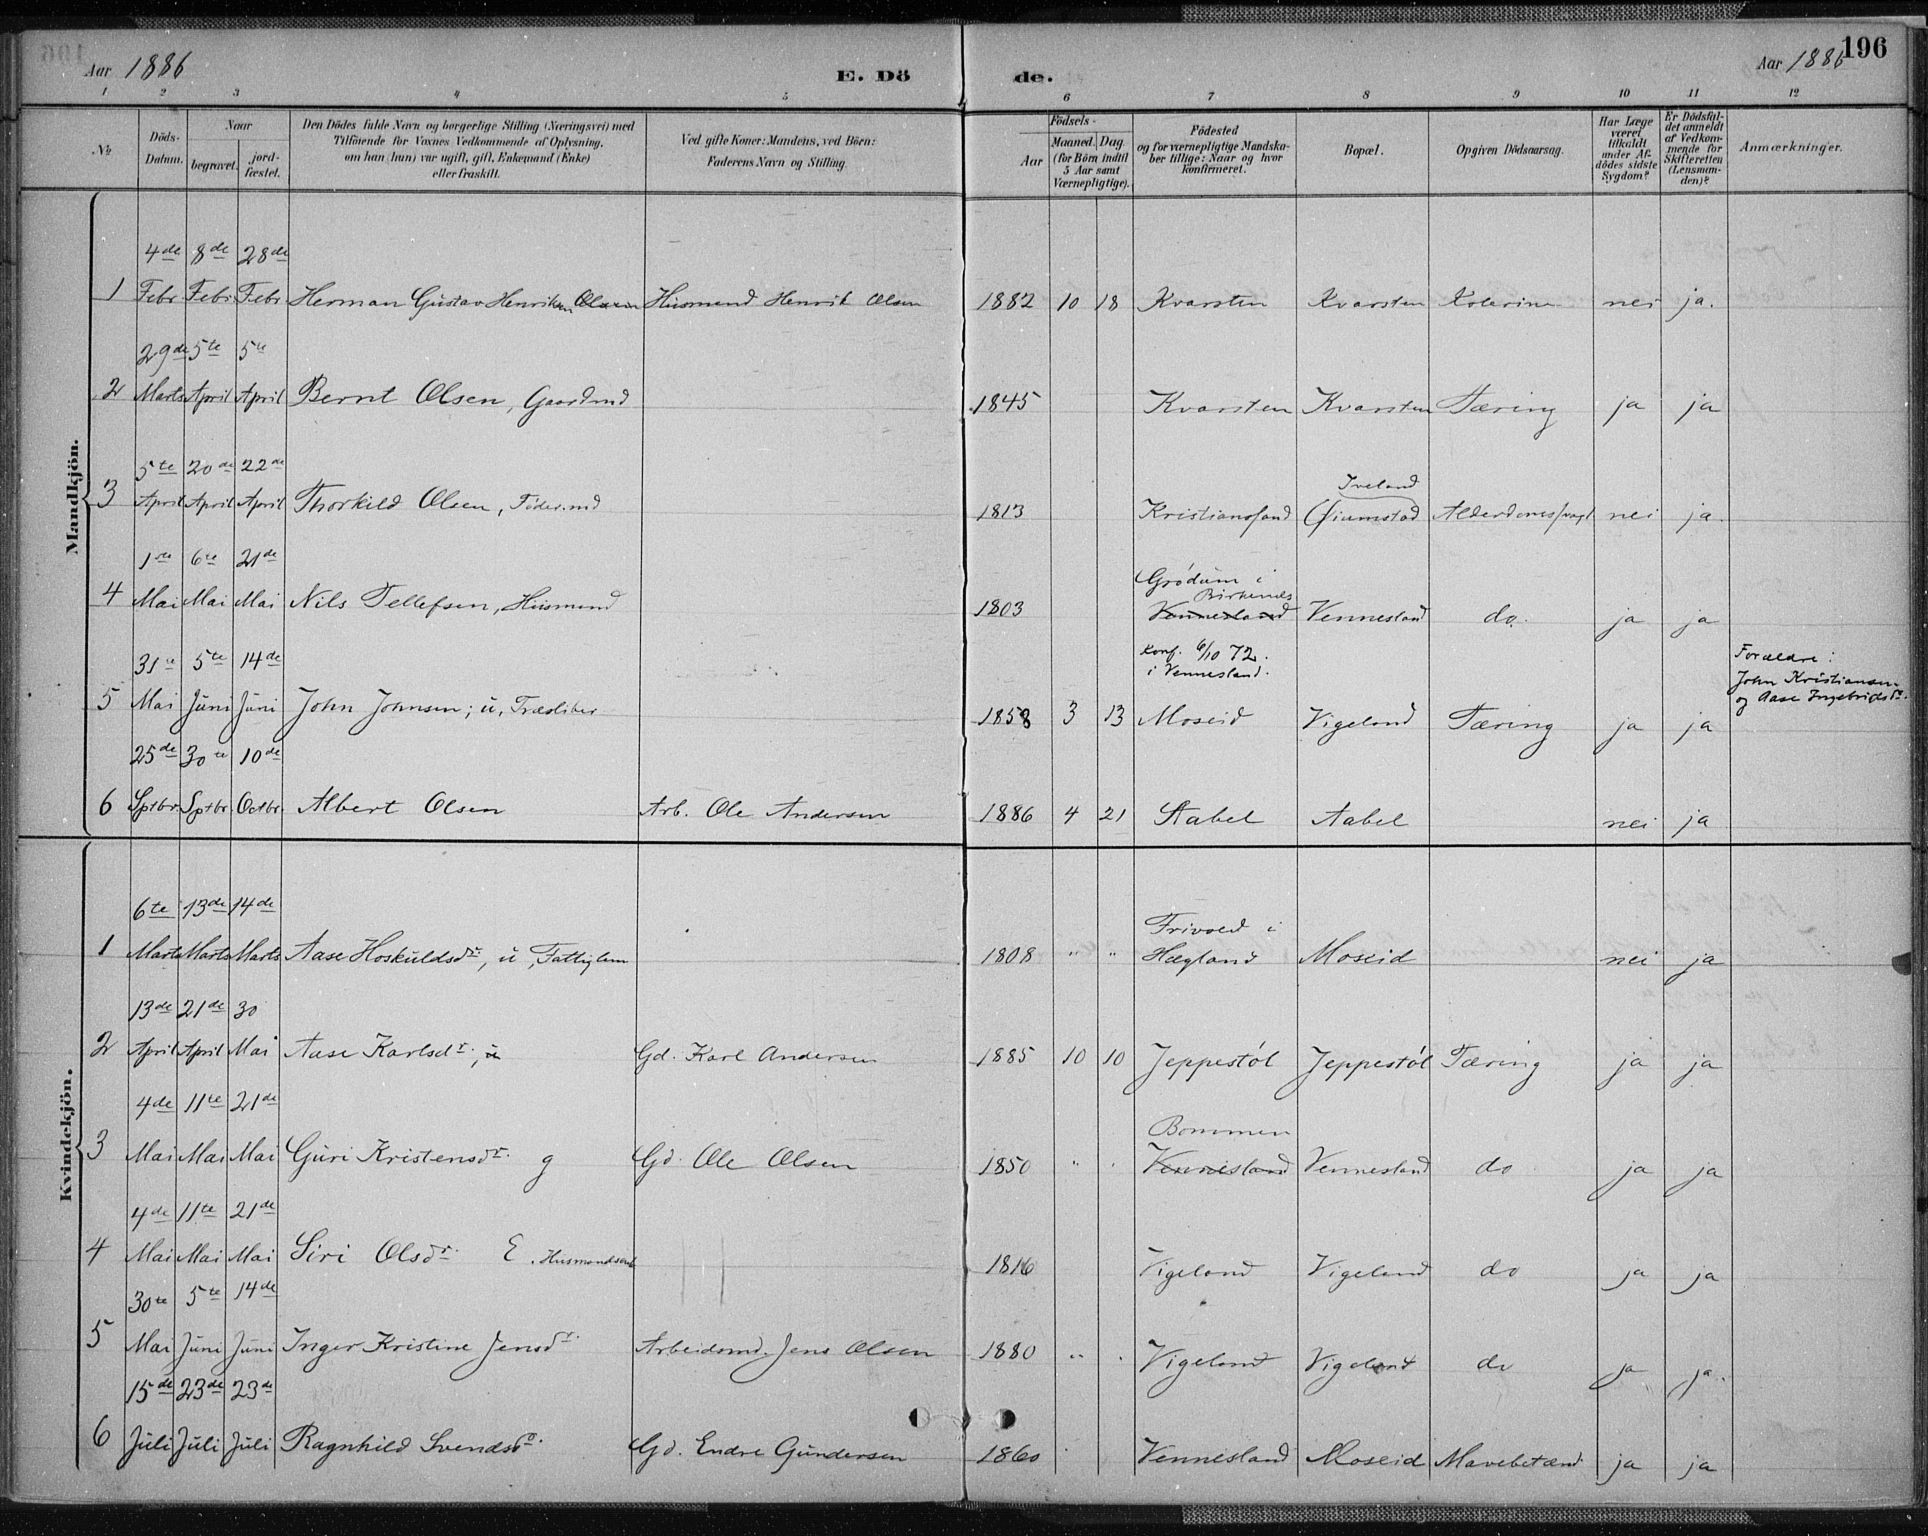 Aar 1886
E. Dö
de.
Aar 1886
196
1 2 3 4 5 6 7 8 9 10 11 12
№
Döds-
Datum.
Naar
begravet.
jord-
fæstet.
Den Dödes fulde Navn og borgerlige Stilling (Næringsvei) med
Tilföiende for Voxnes Vedkommende af Oplysning,
om han (hun) var ugift, gift, Enkemand (Enke)
eller fraskilt.
Ved gifte Koner: Mandens, ved Börn:
Faderens Navn og Stilling.
Födsels-
Aar
Maaned. Dag.
(for Börn indtil
5 Aar samt
Værnepligtige).
Födested
og for værnepligtige Mandska-
ber tillige: Naar og hvor
konfirmeret.
Bopæl.
Opgiven Dödsaarsag.
Har Læge
været
tilkaldt
under Af-
dödes sidste
Sygdom?
Er Dödsfal-
det anmeldt
af Vedkom-
mende for
Skifteretten
(Lensman-
den)?
Anmærkninger.
Mandkjön.
4de 8de 28de
1 Febr Febr Febr Herman Gustav Henriksen Husmand Henrik Olsen 1882 10 18 Kvarsten Kvarsten Kolerine nei ja.
29de 5te 5te
2 Marts April April Bernt Olsen, Gaardmd 1845 Kvarsten Kvarsten Tæring ja ja
5te 20de 22de
Iveland
3 April April April Thorkild Olsen, Föder.md 1813 Kristianssand Øiumstad Alderdomssvagt nei ja.
1ste 6te 21de
Grödum i
Birkenes
4 Mai Mai Mai Nils Tellefsen, Husmand 1803 Vennesland Vennesland do. ja ja
31te 5te 14de
Konf. 6/10 72.
i Vennesland.
Forældre:
John Kristiansen
og Aase Ingebridsdr.
5 Mai Juni Juni John Johnsen; u, Træsliber 1858 3 13 Moseid Vigeland Tæring ja ja
25de 30te 10de
6 Sptbr. Sptbr. Octbr. Albert Olsen Arb. Ole Andersen 1886 4 21 Aabel Aabel nei ja
Kvindekjön.
6te 13de 14de
Frivold i
1 Marts Marts Marts Aase Hoskuldsdr., u, Fattiglem 1808 " " Hægland Moseid nei ja
13de 21de 30
2 April April Mai Aase Karlsdr., u Gd. Karl Andersen 1885 10 10 Jeppestöl Jeppestöl Tæring ja ja
4de 11te 21de
Bommen
3 Mai Mai Mai Guri Kristensdr. g Gd. Ole Olsen 1850 " " Vennesland Vennesland do ja ja
4de 11te 21de
4 Mai Mai Mai Siri Olsdr. E. Husmandsenk 1816 Vigeland Vigeland do ja ja
30te 5te 14de
5 Mai Juni Juni Inger Kristine Jensdr. Arbeidsmd. Jens Olsen 1880 " " Vigeland Vigeland do ja ja.
15de 23de 23de
6 Juli Juli Juli Ragnhild Svendsdr. Gd. Endre Gundersen 1860 Vennesland Moseid Mavebetænd ja ja